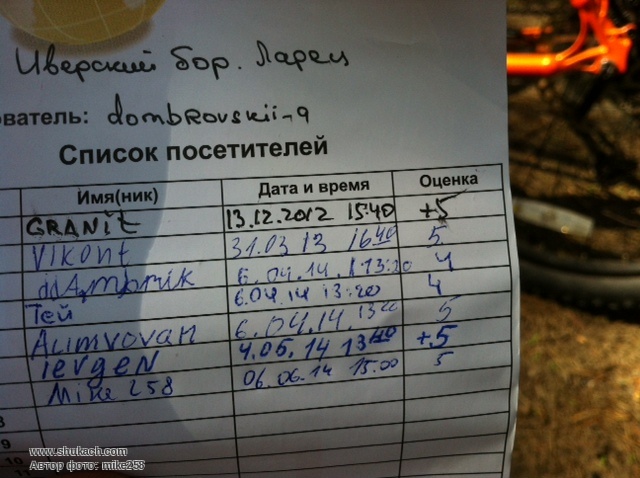 Иверский бор. Ларец
ователь: dombrovskii-9
Список посетителей
Имя(ник) Дата и время Оценка
GRANit 13.12.2012 15:40 +5
Vikont 31.03 13 16:40 5
6.04.14. 13:20 4
Тей 6.04.14 13:20 4
Alimvovan 6.04.14. 13 5
ievgeN 4.05.14 13 +5
Mike 258 06.06.14 15:00 5
8
9
10
11
www.shukach.com
Автор фото: mike258